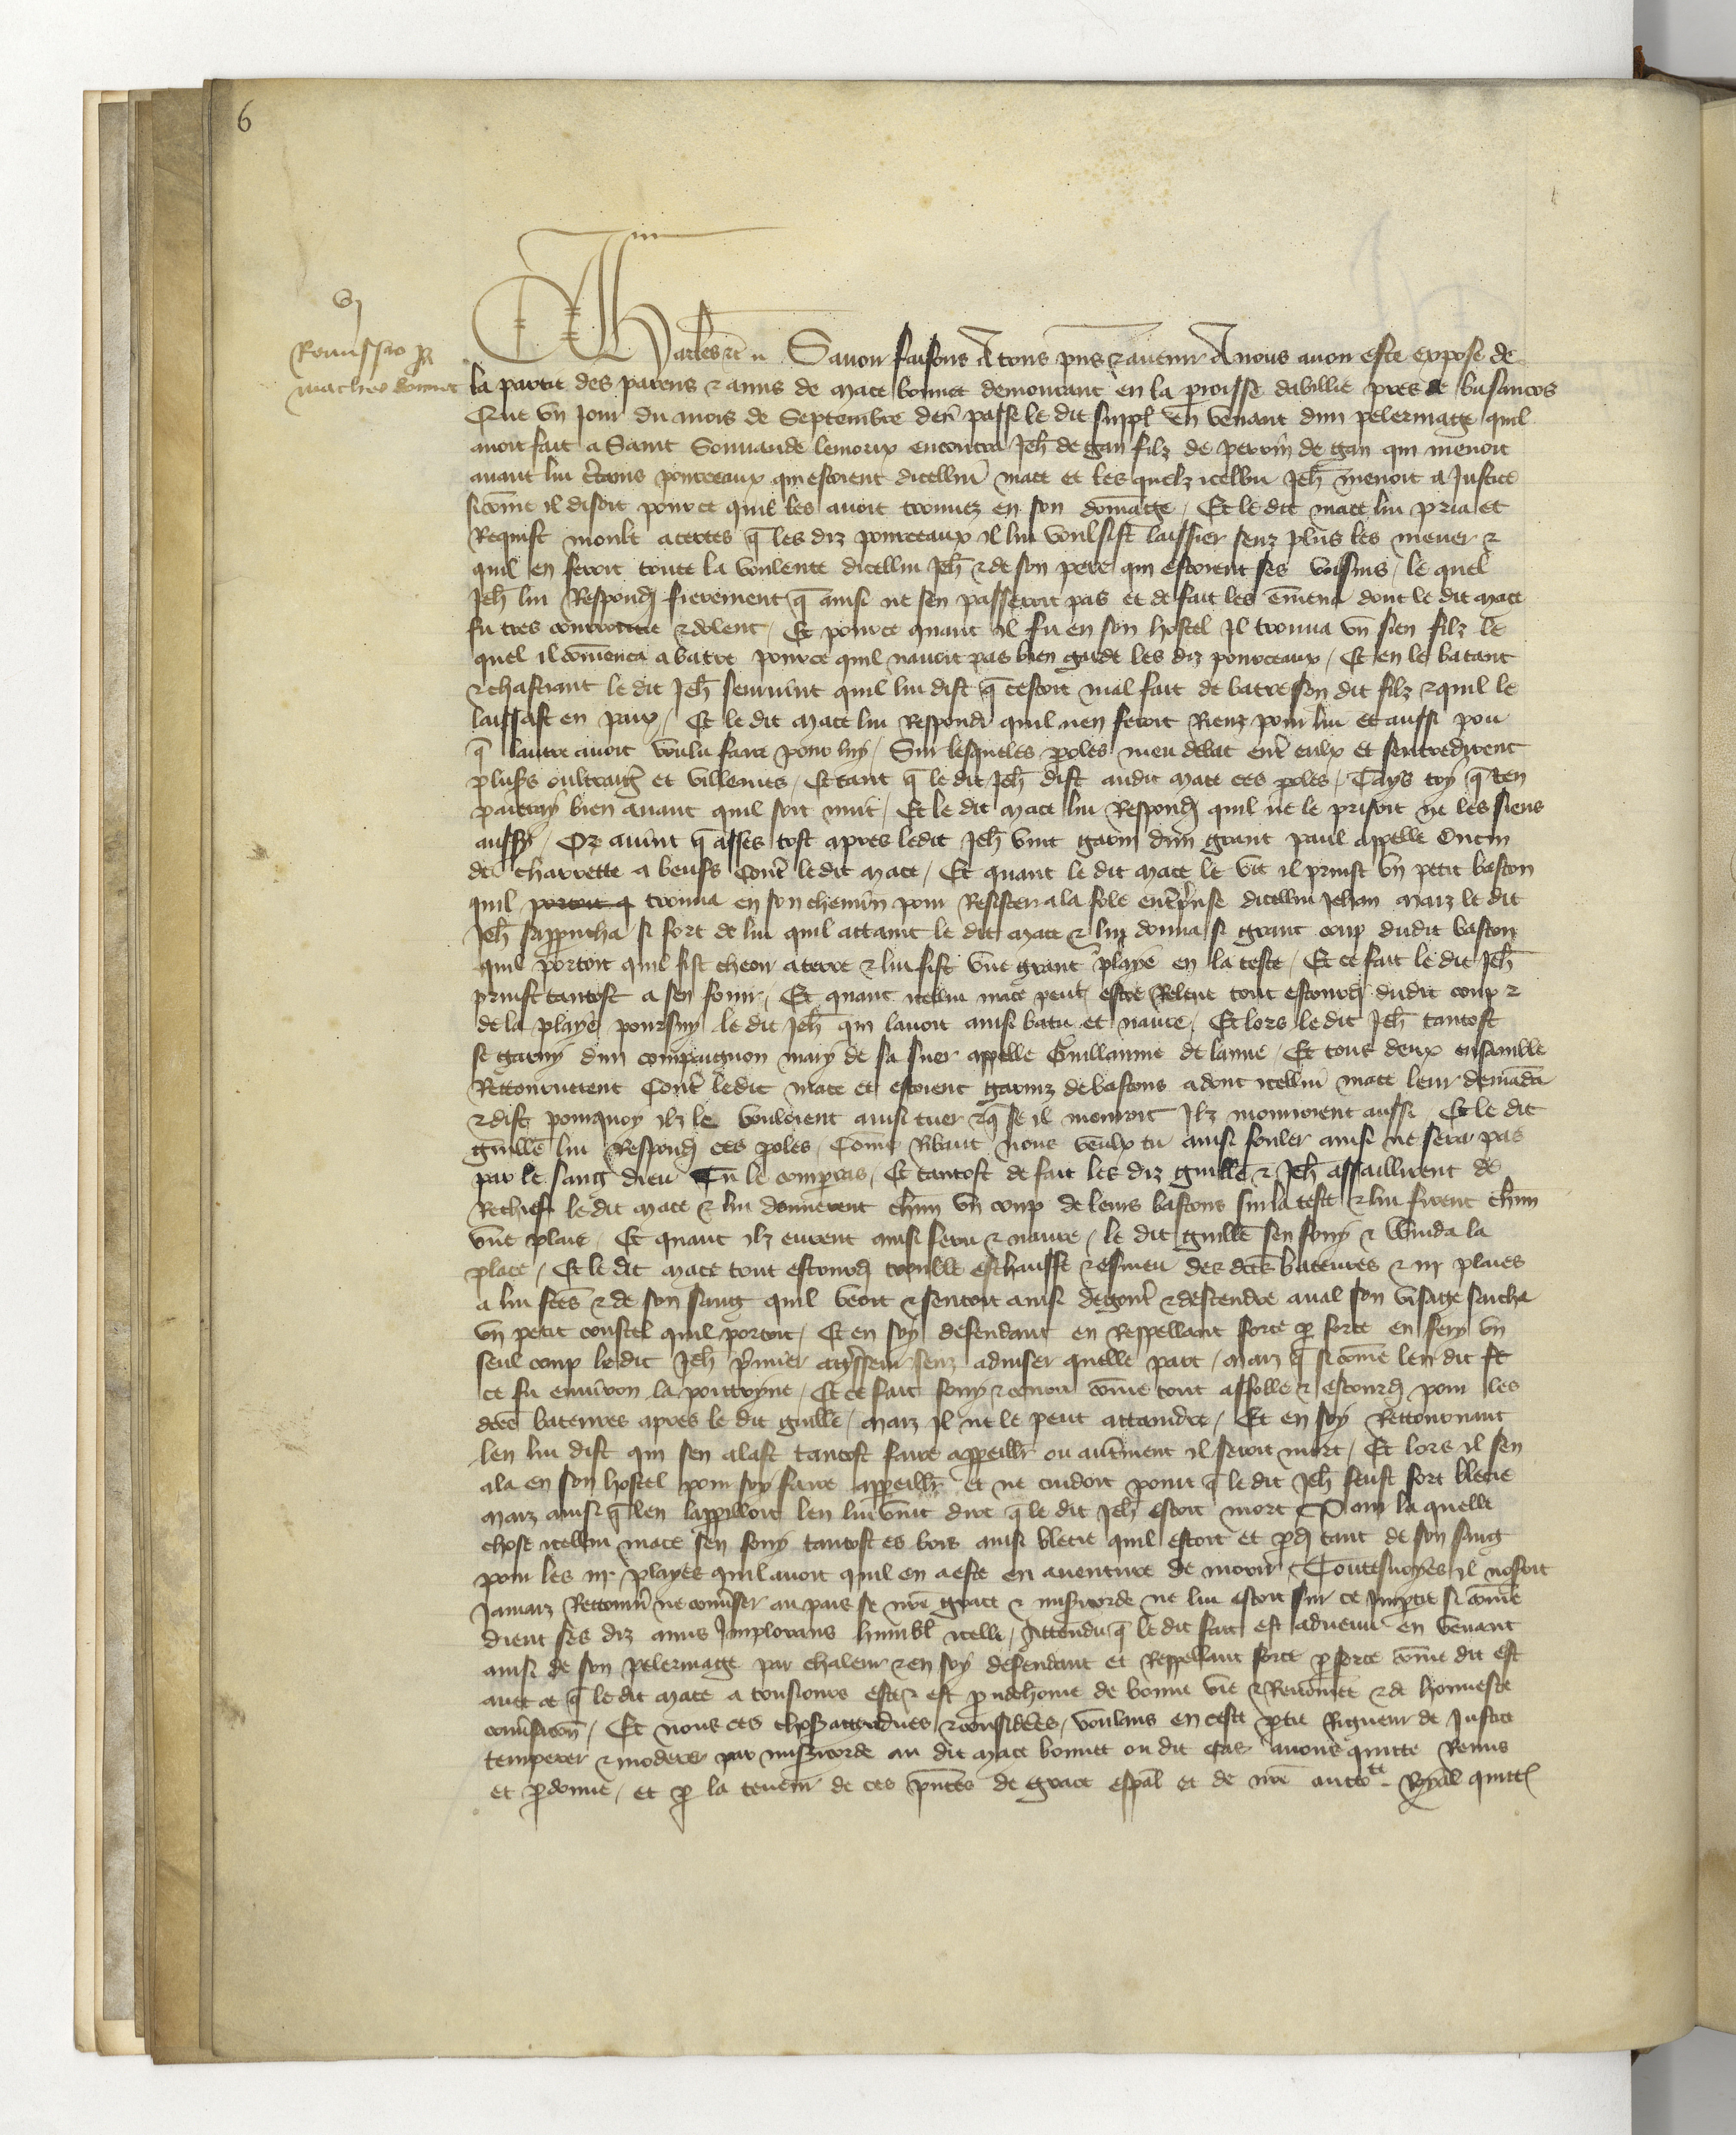 6
vj
Remissio pro
matheo bonnet
Charles etc Savoir faisons A tous pns & avenir A nous avoir este expose de
la partie des parens & amis de Mace bonnet demourant en la parroisse davillie pres de busancos
Que un Jour du mois de Septembre den passe le dit suppl en venant dun pelermage quil
avoit fait a Saint encontra Jeh de gan filz de perrin de gan qui menoit
avant lui certains pourceaux qui estoient dicellui mace et les quelz icellui Jeh menoit a Justice
sicome il disoit pource quil les avoit trouvez en son domage / Et le dit mace lui pria et
Requist moult acertes q les diz pourceaux il lui voulsist laissier senz plus les mener &
quil en feroit toute la voulente dicellui Jeh & de son pere qui estoient ses voisins / le quel
Jeh lui Respondi fierement q ainsi ne sen passeroit pas et de fait les emena dont le dit Mace
fu tres courrocie & dolent / Et pource quant il fu en son hostel Il trouva un sien filz le
quel il comenca a batre pource quil navoit pas bien garde les diz pourceaux / Et en le batant
& chastiant le dit Jeh seurvint quil lui dist q cestoit mal fait de batre son dit filz & quil le
laissast en paix / Et le dit Mace lui Respondi quil nen feroit Rienz pour lui et aussi pou
q lautre avoit voulu faire pour luy / Sur lesqueles poles meu debat entr eulx et sentredirent
plus oultraig et villenies / Et tant q le dit Jeh dist audit Mace ces poles / Tays toy q ten
paieray bien avant quil soit nuit / Et le dit Mace lui Respondi quil ne le prisoit ne les siens
aussy / Or avint q asses tost apres ledit Jeh vint garni dun grant paul appelle
de charrette a beufs contr le dit Mace / Et quant le dit Mace le vit il prinst un petit baston
quil portoit q trouva en son chemin pour Resister a la fole entrprinse dicellui Jehan maiz le dit
Jeh sapproucha si fort de lui quil attaint le dit Mace & lui donna si grant coup dudit baston
quil portoit quil fist cheoir aterre & lui fist une grant playe en la teste / Et ce fait le dit Jeh
prinst tantost a sen fouir / Et quant icellui mace peut estre Releve tout estourdi dudit coup &
de la playe poursuy le dit Jeh qui lavoit ainsi batu et navre / Et lors le dit Jeh tantost
se garny dun compaignon mary de sa suer appelle Guillaume de lanne / Et tous deux ensamble
Rettournerent Contr ledit mace et estoient garniz de bastons adont icellui mace leur demanda
& dist pourquoy ilz le vouloient ainsi tuer & q se il mouroit Ilz mourroient aussi Et le dit
guille lui Respondi ces poles / Come Ribaut nous veulx tu ainsi fouler ainsi ne sera pas
par le sang dieu Tu le comparras / Et tantost de fait les diz guille & Jeh assaillirent de
Rechief le dit Mace & lui donnerent chun un coup de leurs bastons sur la teste & lui firent chun
une plaie / Et quant ilz eurent ainsi feru & navre / le dit guille sen fouy & wida la
place / Et le dit Mace tout estourdi trouble eschauffe & esmeu des dces bateures & iij plaies
a lui fces & de son sang quil veoit & sentoit ainsi degoutr & descendre aval son visage saicha
un petit coustel quil portoit / Et en soy defendant en Reppellant force p force en fery un
seul coup le dit Jeh p'mier agr'sseur senz adviser quelle part / maiz q si come len dit
ce fu environ la poictryne / Et ce fait fouy & couru come tout affolle & estourdi pour les
dces bateures apres le dit guille / Maiz Il ne le peut attaindre / Et en soy Rettournant
len lui dist qui sen alast tantost faire appeillr ou autrment il seroit mort / Et lors il sen
ala en son hostel pour soy faire appeillr et ne cuidoit point q le dit Jeh feust fort blecie
Maiz ainsi q len lappilloit len lui vint dire q le dit Jeh estoit mort Pour la quelle
chose icellui mace sen fouy tantost es bois ainsi blecie quil estoit et pdi tant de son sang
pour les iij playes quil avoit quil en a este en aventure de morir / Toutesvoyes il noseroit
Jamaiz Rettournr ne convser au pais se nre grace & misicorde ne lui estoit sur ce Impartie si come
dient ses diz amis Implorans humbl icelle / Attendu q le dit fait est advenu en venant
ainsi de son pelermage par chaleur & en soy defendant et Reppellant force p force come dit est
avec ce q le dit Mace a tousjours este & est preudhome de bonne vie & Renomee & de honneste
convsacion / Et nous ces choses attendues & considees / voulans en ceste ptie Rigueur de Justice
temperer & moderer par misicorde au dit Mace bonnet ou dit cas avons quitte Remis
et pdonne / et p la teneur de ces pntes de grace espal et de nre auctte Royal quitt